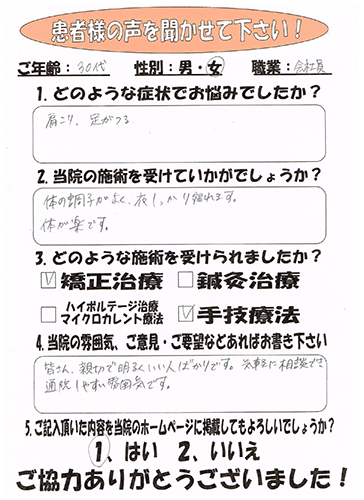 患者様の声を聞かせて下さい!
ご年齢:30代 性別:男・女 職業:会社員
1.どのような症状でお悩みでしたか?
肩こり、足がつる
2.当院の施術を受けていかがでしょうか?
体の調子がよく、夜しっかり寝れます。
体が楽です。
3.どのような施術を受けられましたか?
矯正治療 鍼灸治療
ハイボルテージ治療
マイクロカレント療法 手技療法
4.当院の雰囲気、ご意見・ご要望などあればお書き下さい
皆さん、親切で明るくいい人ばかりです。気軽に相談でき
通院しやすい雰囲気です。
5.ご記入頂いた内容を当院のホームページに掲載してもよろしいでしょうか?
1、はい 2、いいえ
ご協力ありがとうございました!